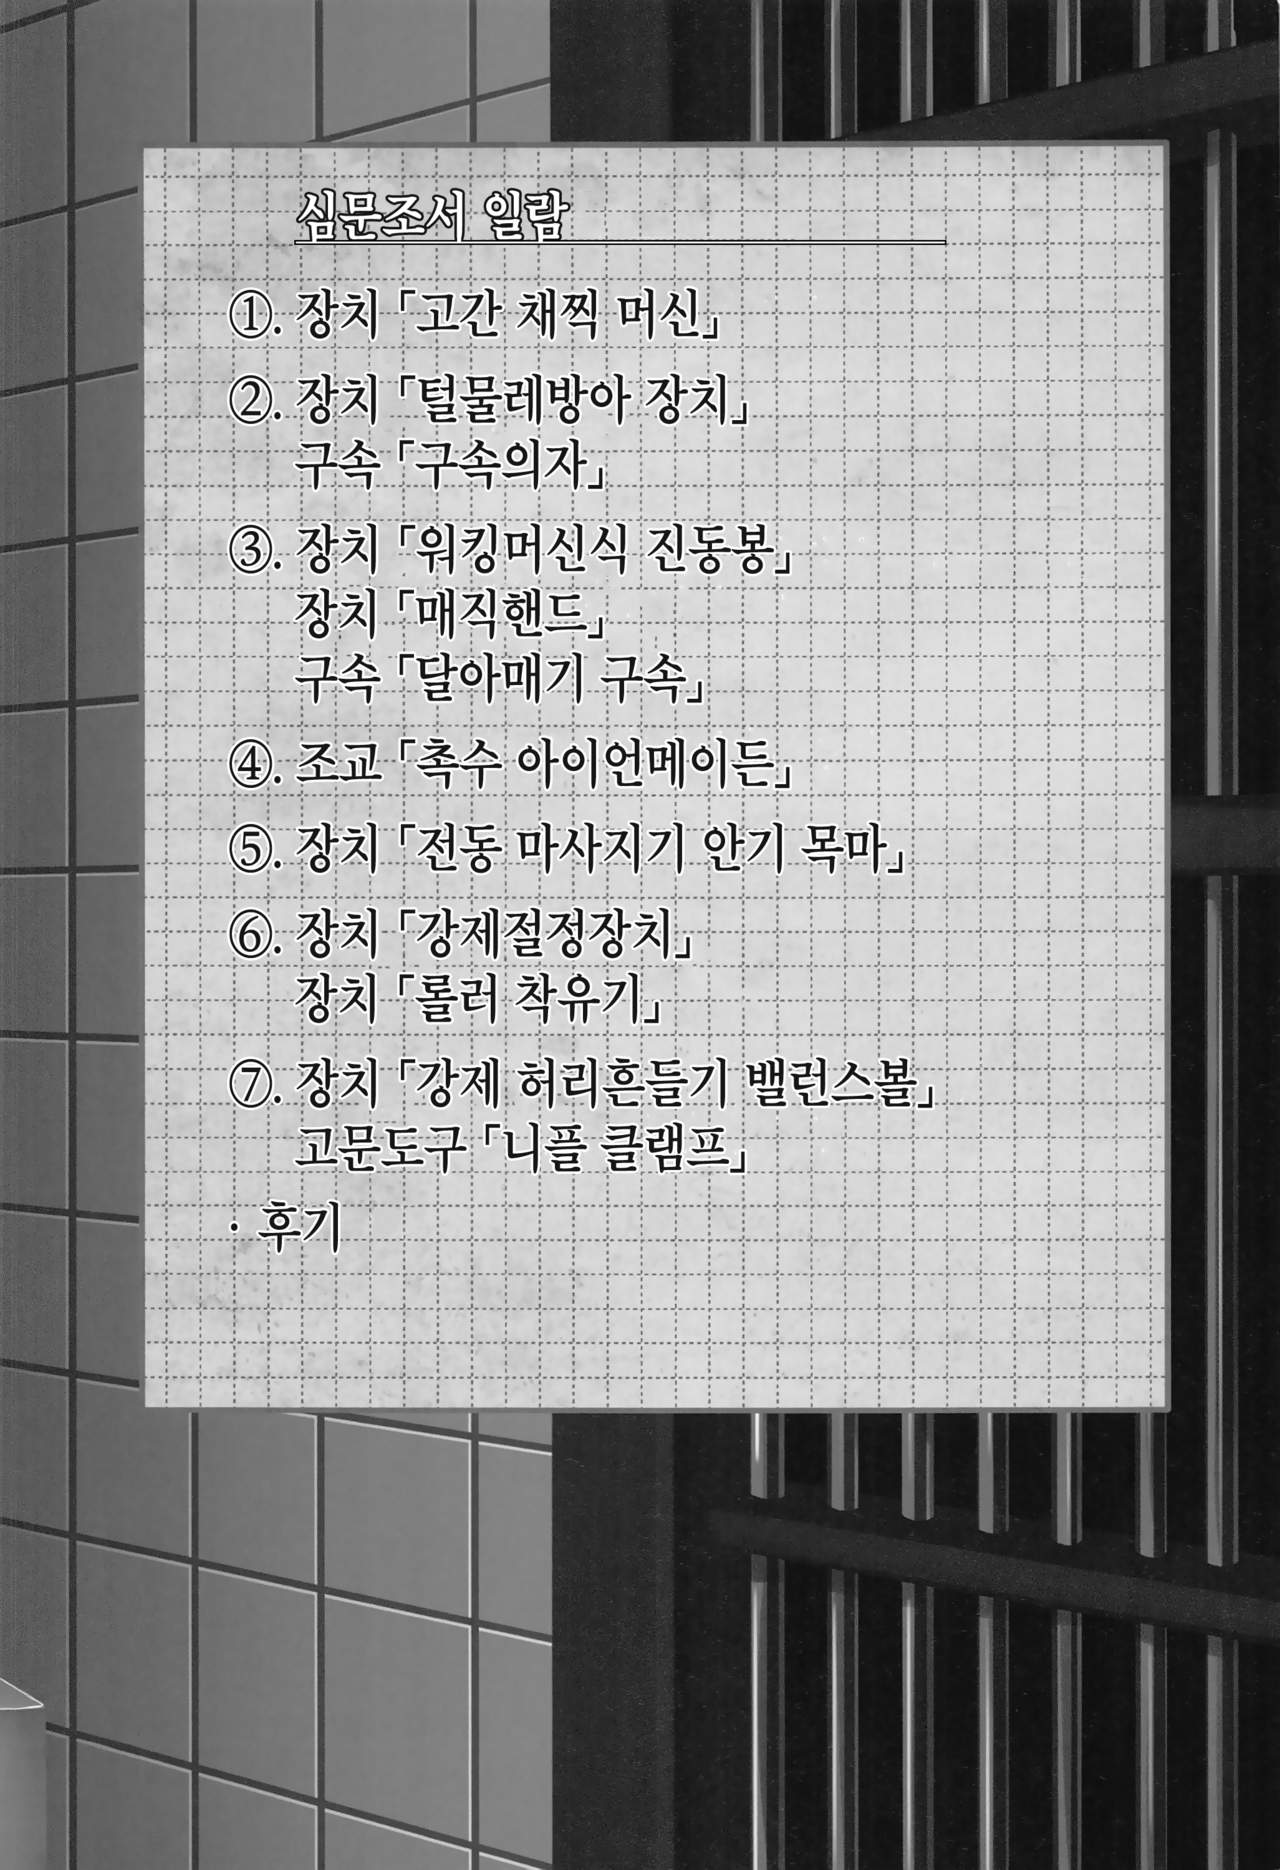 심문조서 일람
①. 장치 「고간 채찍 머신」
②. 장치 「털물레방아 장치」
구속 「구속의자」
③. 장치 「워킹머신식 진동봉」
장치 「매직핸드」
구속 「달아매기 구속」
④. 조교 「촉수 아이언메이든」
⑤. 장치 「전동 마사지기 안기 목마」
⑥. 장치 「강제절정장치」
장치 「롤러 착유기」
⑦. 장치 「강제 허리흔들기 밸런스볼」
고문도구 「니플 클램프」
· 후기